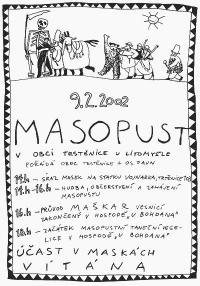 9.2.2002
MASOPUST
V OBCI TRSTĚNICE U LITOMYŠLE
POŘÁDÁ OBEC TRSTĚNICE + OS TAVN
14h. - SRAZ MASEK NA STATKU VOJNARKA, TRSTĚNICE
14h.-16h. - HUDBA, OBČERSTVENÍ A ZAHÁJENÍ
MASOPUSTU
16h. - PRŮVOD MAŠKAR VESNICÍ
ZAKONČENÝ V HOSPODĚ „U BOHDANA"
18h. - ZAČÁTEK MASOPUSTNÍ TANEČNÍ VESE-
LICE V HOSPODĚ „U BOHDANA"
ÚČAST V MASKÁCH
VÍTÁNA